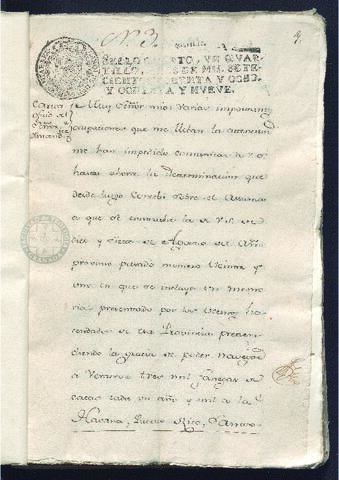 N. 3.
SELLO QUARTO, VN QVAR-
TILLO, AÑOS DE MIL SETE-
CIENTOS OCHENTA Y OCHO,
Y OCHENTA Y NUEVE.
Muy Señor mio: varias important.
ocupaciones que me llaban la atencion
me han impedido comunicar a V. S.
hasta ahora la Determinacion que
desde luego concebi sobre el Assumto
a que se contrahe la de V. S. de
diez y siete de Agosto del Año
proximo pasado numero veinte y
uno en que se incluyo un memo
rial presentado por los vecinos ha-
cendados de esa Provincia preten-
diendo la gracia de poder navegar
a Veracruz tres mil fanegas de
cacao cada un año y mil a la
Havana, Puerto Rico, Santo-